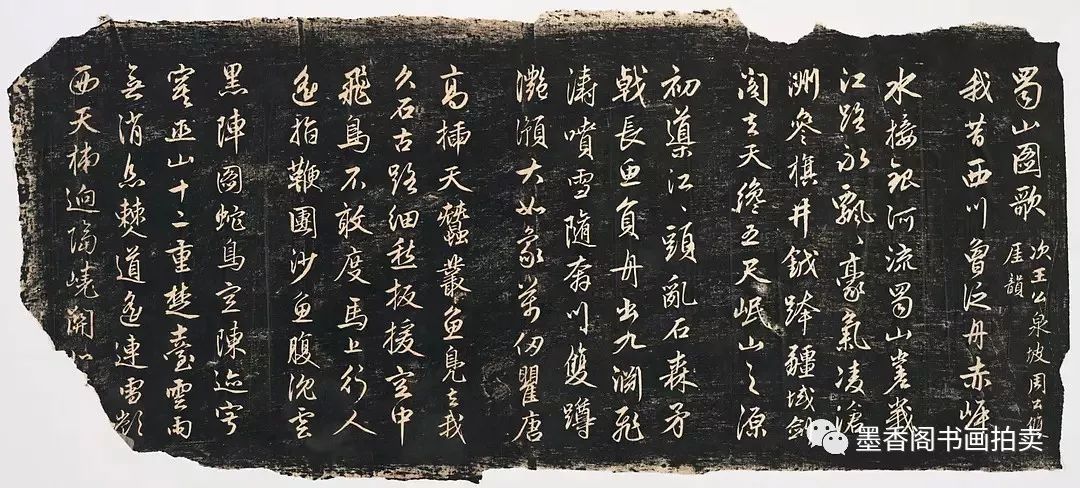 蜀山圖歌 次王公泉坡周
厓韻
我昔西川曾泛舟赤岸
水接銀河流蜀山嵳
江路永飄〻豪氣凌滄
洲參旗井鉞 疆域劍
閣去天纔五尺岷山之源
初導江〻頭亂石森矛
戟長魚負舟出九淵飛
濤噴雪隨奔川雙蹲
灧澦大如象萬仞瞿唐
高插天蠶叢魚鳧去我
久石古路細愁扳援空中
飛鳥不敢度馬上行人
遙指鞭團沙魚腹沈雲
黑陣圖蛇鳥空陳迹穹
窿巫山十二重楚臺雲雨
無消息僰道遙連雪嶺
西天梯迥隔嶢關
墨香阁书画拍卖